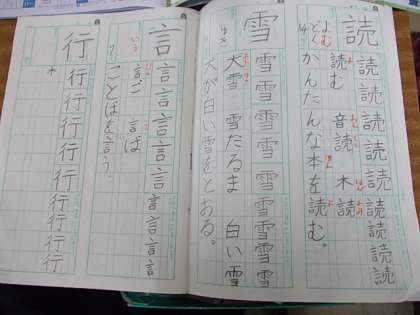 読
よむ
どく
読読読読読読読読読
読む 音読 木読
かんたんな本を読む。
雪
ゆき
雪雪雪雪雪雪雪雪雪
大雪 雪だるま 白い雪
犬が白い雪をとおる。
言
いう
言言言言言言言言言
言ご 言は
ことばを言う。
行
行行行行行行行行行